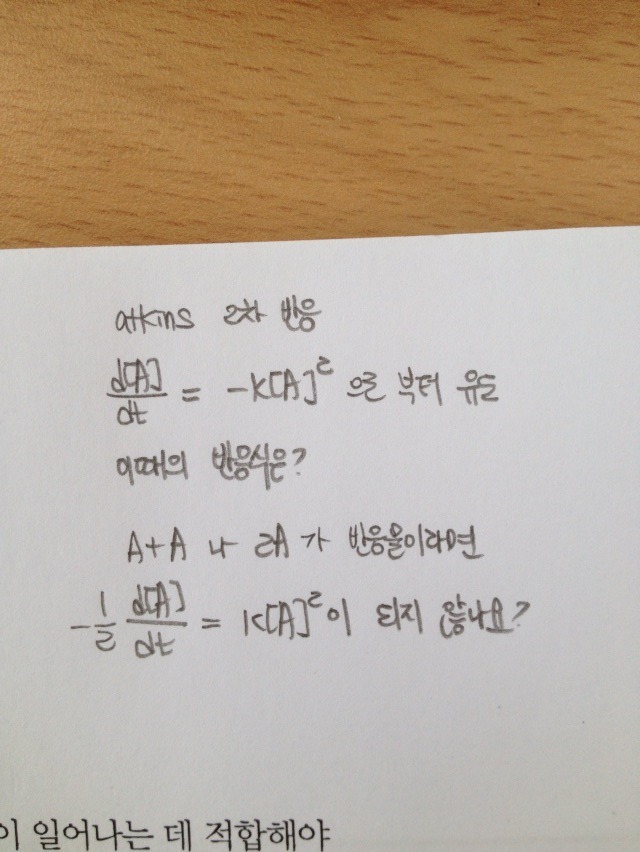 atkins 2차 반응
d[A]/dt = -k[A]² 으로 부터 유도
이때의 반응식은?
A+A 나 2A 가 반응물이라면
-1/2 d[A]/dt = k[A]²이 되지 않나요?
이 일어나는 데 적합해야